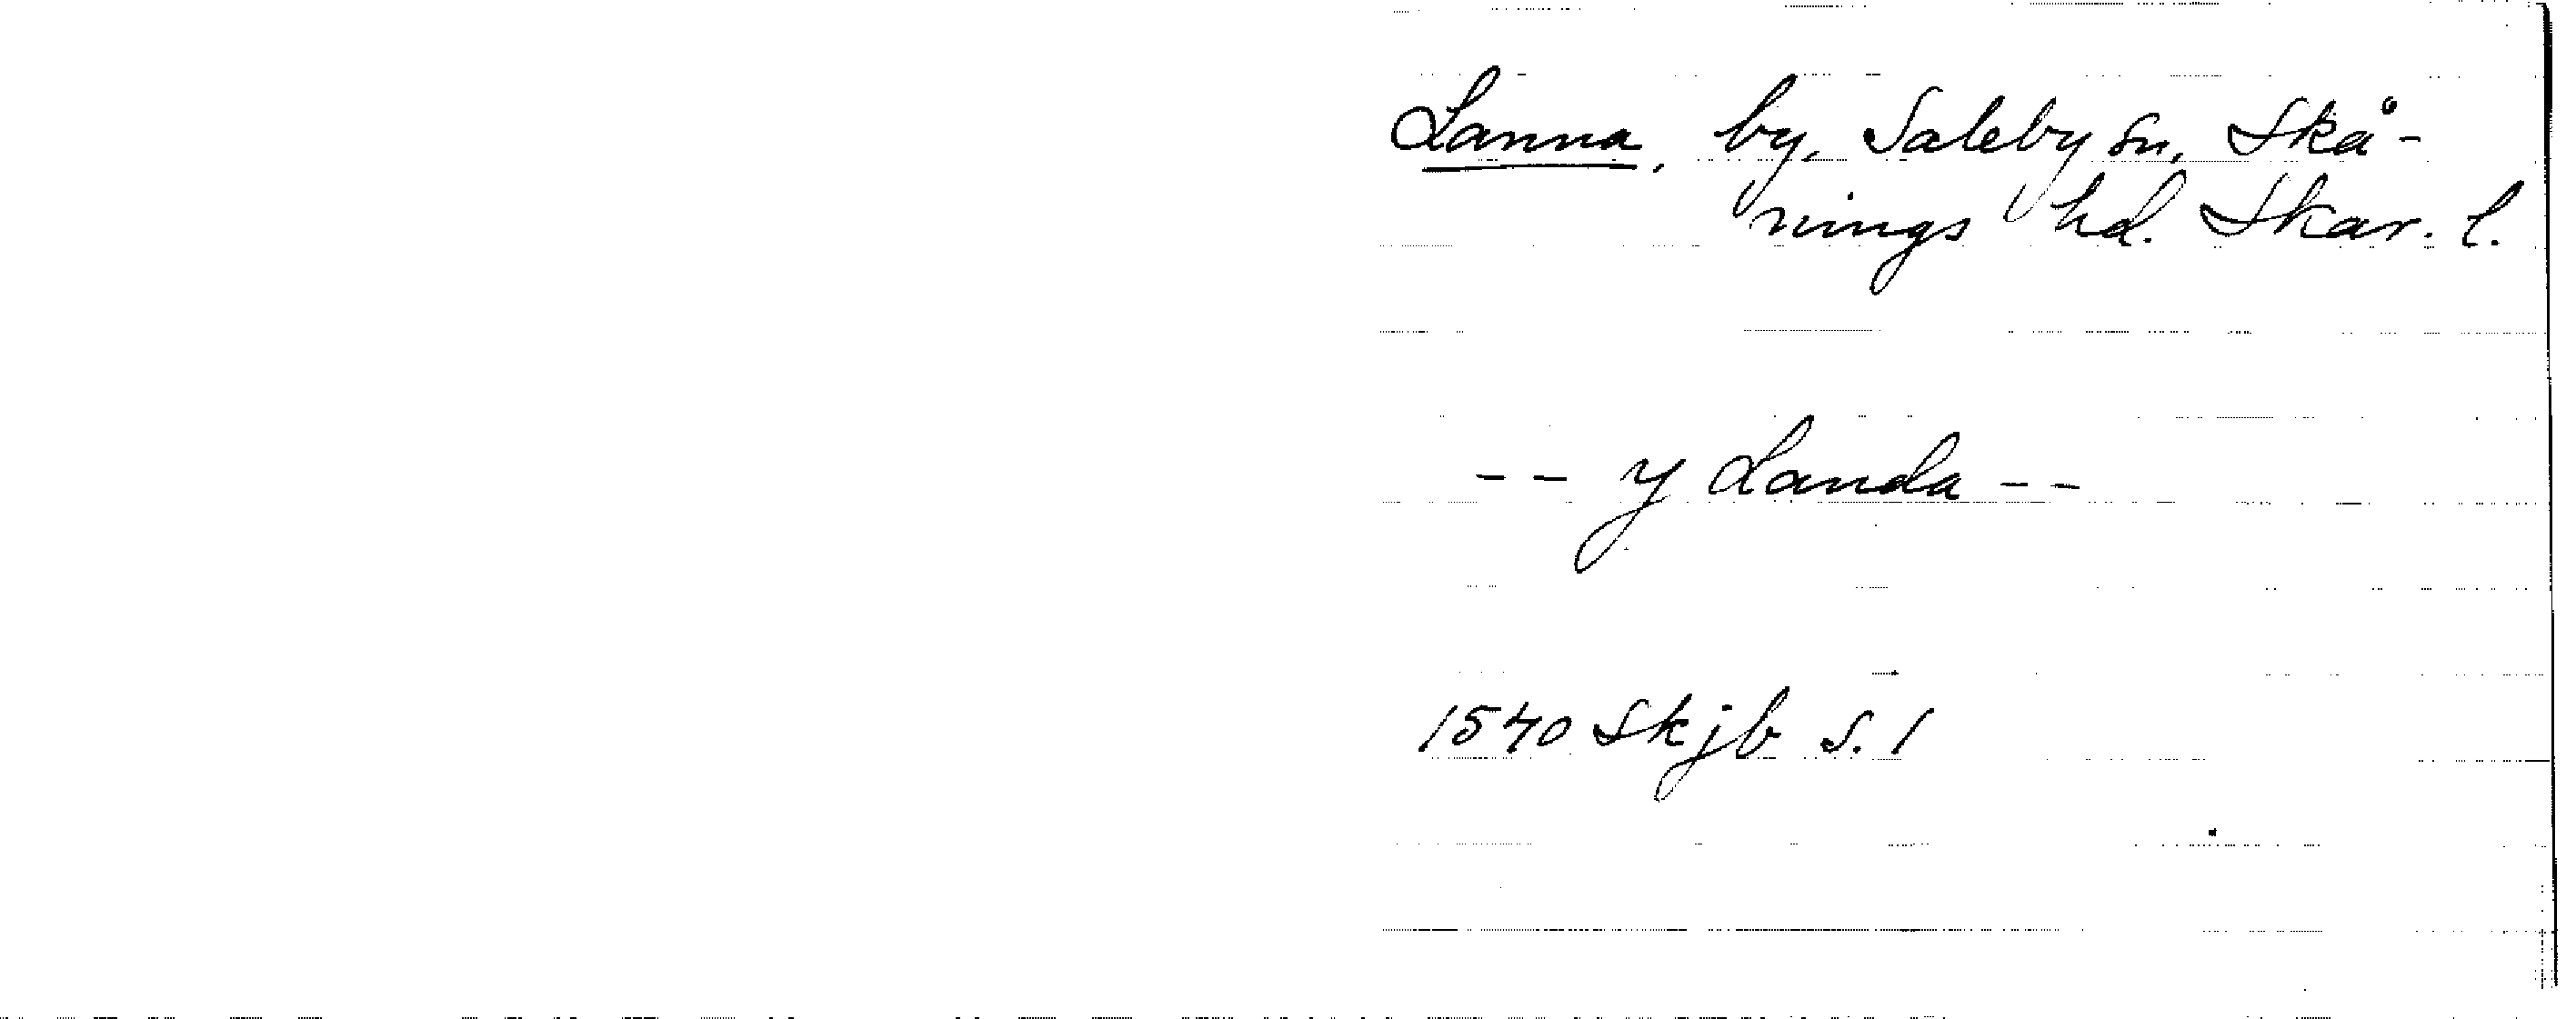 Lanna, by, Saleby sn, Skå-
nings hd. Skar. l.
-- y Landa --
1540 Skjb s. 1